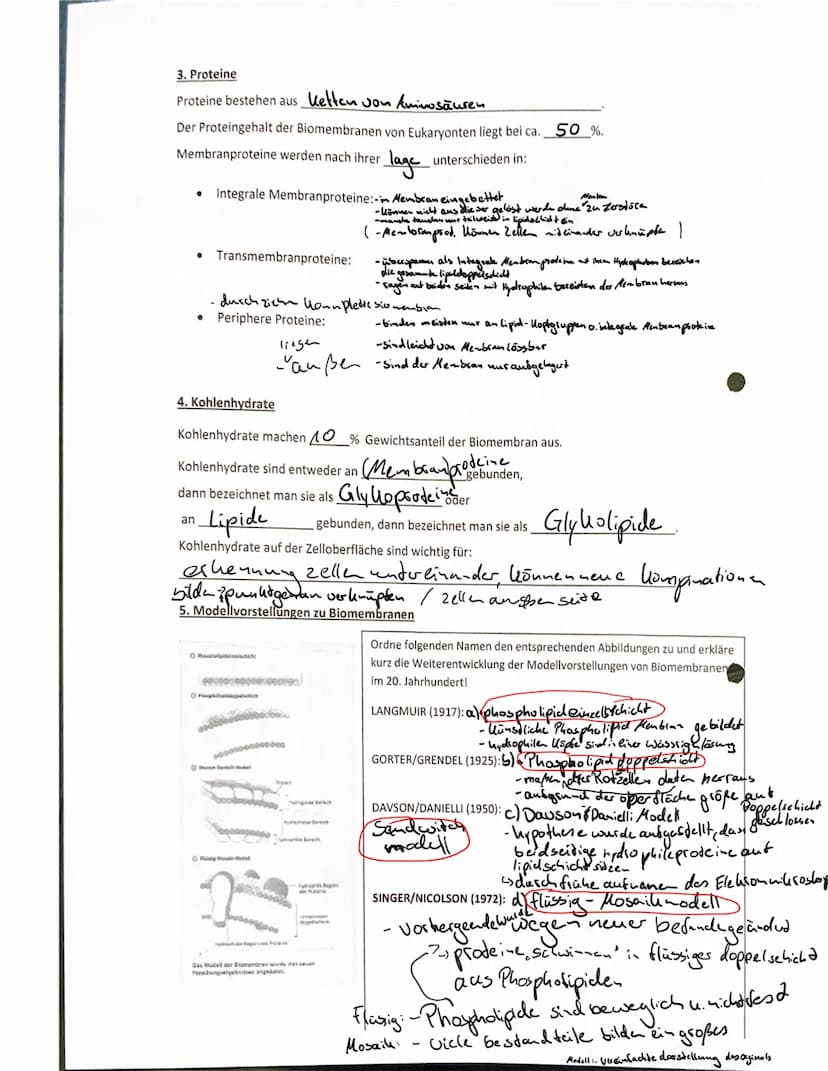 3. Proteine
Proteine bestehen aus Ketten von Aminosäuren.
Der Proteingehalt der Biomembranen von Eukaryonten liegt bei ca. 50 %.
Membranproteine werden nach ihrer lage unterschieden in:
• Integrale Membranproteine: - in Membran eingebettet
- können nicht aus dieser gelöst werden ohne Membran zu zerstören
- manche tauchen nur teilweise in lipidschicht ein
( - Membranprot. können Zellen miteinander verknüpfen )
• Transmembranproteine: - überspannen als Integrale Membranproteine mit ihren Hydrophoben bereichen
die gesammte lipiddoppelschicht
- ragen auf beiden seiten mit Hydrophilen bereichen der Membran heraus
- durchziehen komplette biomembran
• Periphere Proteine: - binden meisten nur an Lipid-Kopfgruppen o. integrale Membranproteine
liegen - sind leicht von Membran lössbar
- außen - sind der Membran nur aufgelagert
4. Kohlenhydrate
Kohlenhydrate machen 10 % Gewichtsanteil der Biomembran aus.
Kohlenhydrate sind entweder an (Membran)proteine gebunden,
dann bezeichnet man sie als Glykoproteine oder
an Lipide gebunden, dann bezeichnet man sie als Glykolipide.
Kohlenhydrate auf der Zelloberfläche sind wichtig für:
erkennung zellen untereinander, können neue kompinationen
bilden verknüpfen / zellen außenseite
5. Modellvorstellungen zu Biomembranen
Phospholipideinzelschicht
Phospholipiddoppelschicht
Davson-Danielli-Modell
Protein
hydrophiler Bereich
hydrophober Bereich
hydrophiler Bereich
Flüssig-Mosaik-Modell
hydrophile Region des Proteins
Phospholipiddoppelschicht
hydrophobe Region des Proteins
Das Modell der Biomembran wurde den neuen Forschungsergebnissen angepasst.
Ordne folgenden Namen den entsprechenden Abbildungen zu und erkläre
kurz die Weiterentwicklung der Modellvorstellungen von Biomembranen
im 20. Jahrhundert!
LANGMUIR (1917): a) phospholipideinzelschicht
- künstliche Phospholipid Membran gebildet
- hydrophilen köpfe sind in einer wässrig lösung
GORTER/GRENDEL (1925): b) Phospholipiddoppelschicht
- maßen roter Zellen daten herraus
- aufgrund der oberfläche größe auf Doppelschicht geschlossen
DAVSON/DANIELLI (1950): c) Dawson & Danielli Modell
Sandwitch modell
- hypothese wurde aufgestellt, dass
beidseitige hydrophileproteine auf
lipidschicht sitzen
↳ durch frühe aufnamen des Elektronmikroskop
SINGER/NICOLSON (1972): d) flüssig-Mosaikmodell
- vorhergeende wurde wegen neuer befunde geändert
↳ proteine „schwimmen" in flüssiger doppelschicht
aus Phospholipiden
Flüssig: - Phospholipide sind beweglich u. nicht fest
Mosaik: - viele bestandteile bilden ein großes
Modell: - vereinfachte darstellung des originals